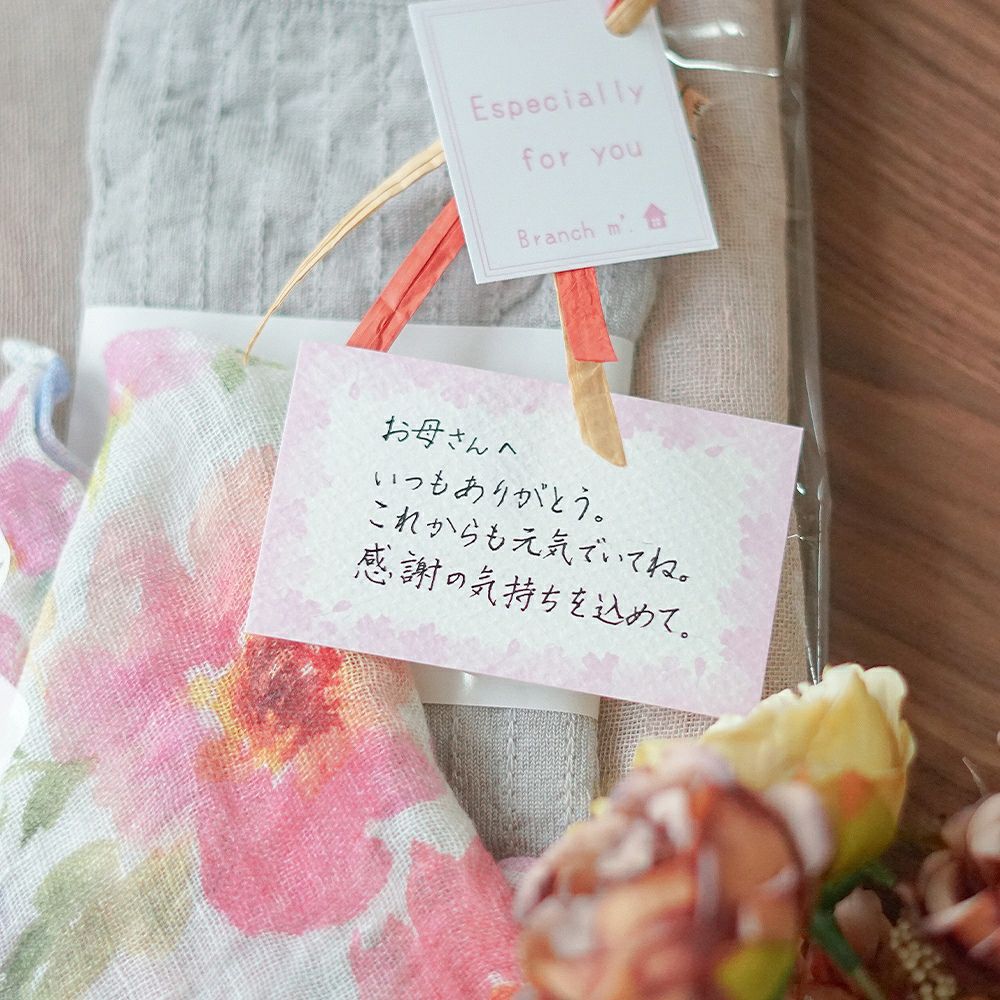 Especially
for you
Branch m'.
お母さんへ
いつもありがとう。
これからも元気でいてね。
感謝の気持ちを込めて。